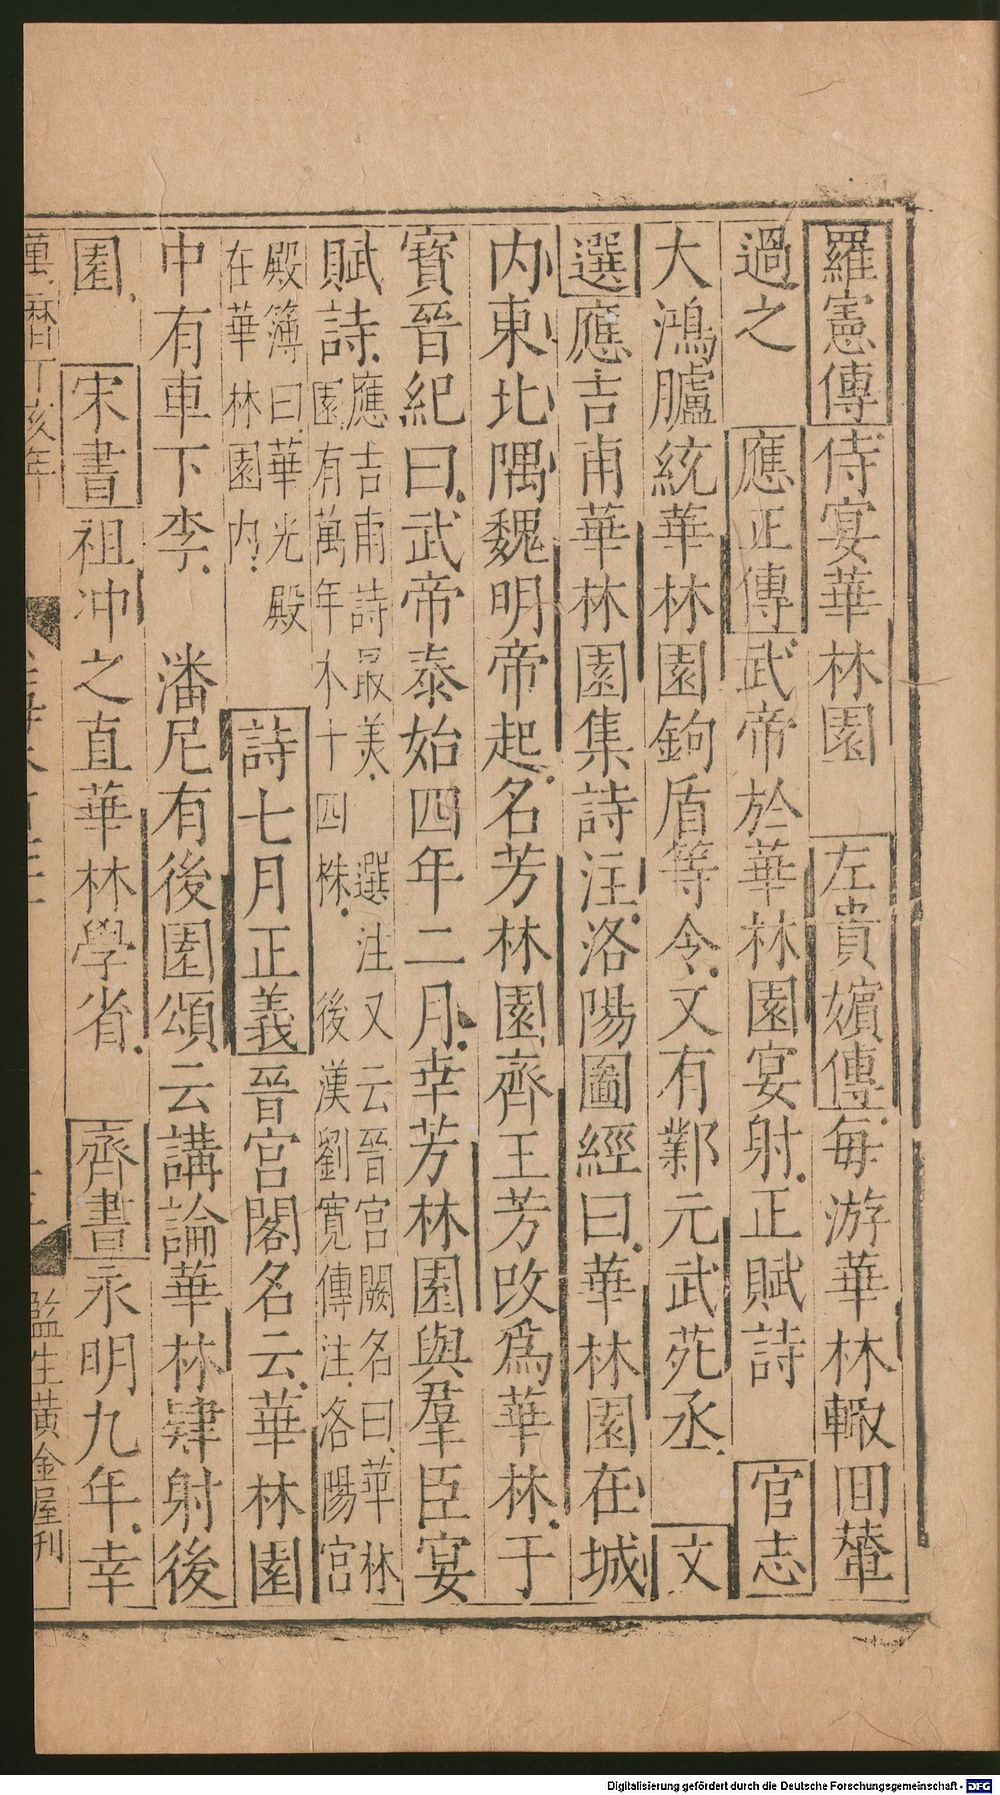 羅憲傳侍宴華林園　左貴嬪傳每游華林輙回輦
過之　應正傳武帝於華林園宴射正賦詩　官志
大鴻臚統華林園鉤盾等令又有鄴元武苑丞　文
選應吉甫華林園集詩注洛陽圖經曰華林園在城
内東北隅魏明帝起名芳林園齊王芳改爲華林于
寶晉紀曰武帝泰始四年二月幸芳林園與羣臣宴
賦詩應吉甫詩最美　選注又云晉宮闕名曰華林
園有萬年木十四株　後漢劉寬傳注洛陽宮
殿簿曰華光殿
在華林園内　詩七月正義晉宮閣名云華林園
中有車下李　潘尼有後園頌云講論華林肄射後
園　宋書祖冲之直華林學省　齊書永明九年幸
萬曆丁亥年　監生黃金屋刊
Digitalisierung gefördert durch die Deutsche Forschungsgemeinschaft - DFG